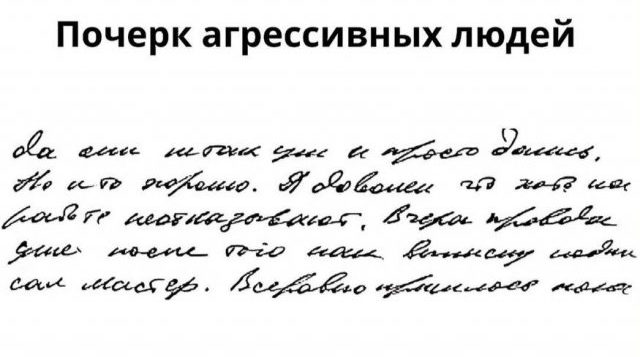 Почерк агрессивных людей
да они итак уж и просто дались.
Но и то хорошо. Я доволен что хоть на
работе неотказывают. Вчера
уже после того как выписку подпи
сал мастер. Всеравно пришлось